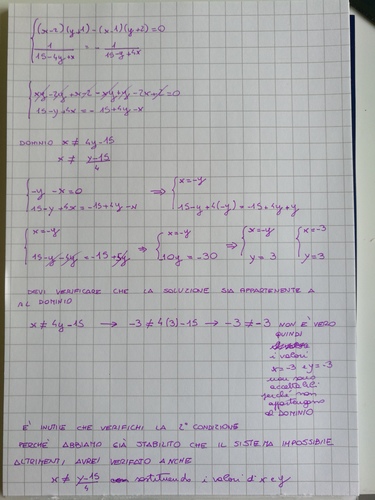 {(x-2)(y+1)-(x-1)(y+2)=0
1/(15-4y+x) = - 1/(15-y+4x)
{xy-2y+x-2-xy+y-2x+2=0
15-y+4x=-15+4y-x
DOMINIO x≠4y-15
x≠ (y-15)/4
{-y-x=0 ⇒ {x=-y
15-y+4x=-15+4y-x 15-y+4(-y)=-15+4y+y
{x=-y ⇒ {x=-y ⇒ {x=-y {x=-3
15-y-4y=-15+5y 10y=-30 y=3 y=3
DEVI VERIFICARE CHE LA SOLUZIONE SIA APPARTENENTE A
AL DOMINIO
x≠4y-15 → -3≠4(3)-15 → -3≠-3 NON È VERO
QUINDI
i valori
x=-3 e y=-3
non sono
accettabili
perché non
appartengono
al DOMINIO
E' INUTILE CHE VERIFICHI LA 2° CONDIZIONE
PERCHÉ ABBIAMO GIÀ STABILITO CHE IL SISTEMA IMPOSSIBILE
ALTRIMENTI, AVREI VERIFICATO ANCHE
x≠ (y-15)/4 sostituendo i valori di x e y